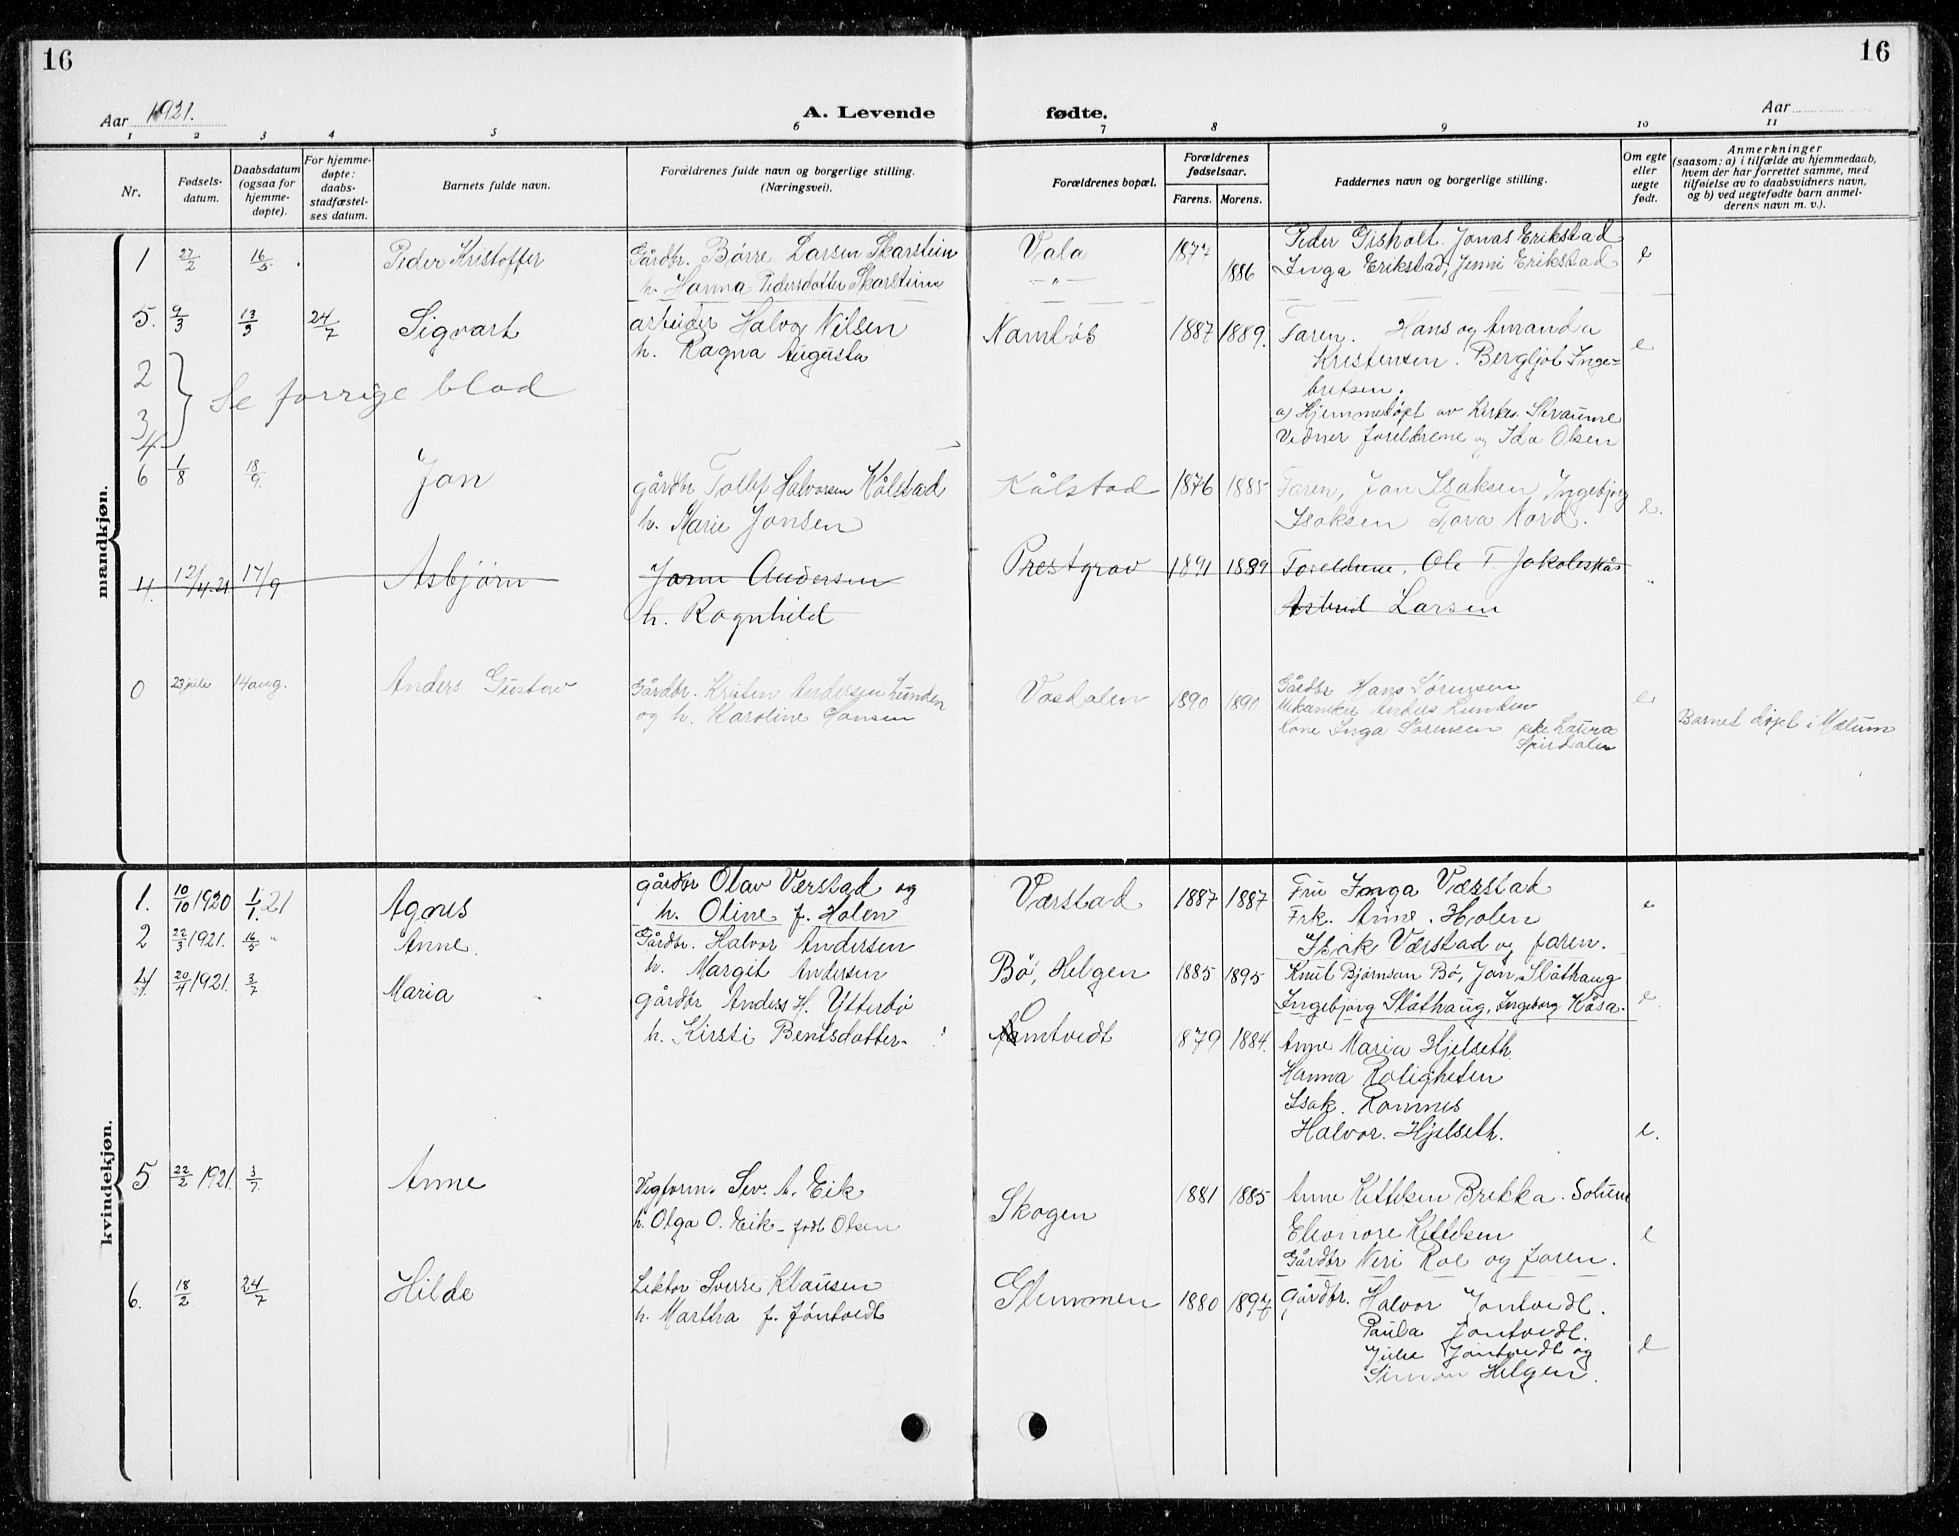 16
16
Aar 1921.
A. Levende fødte.
Aar
1 2 3 4 5 6 7 8 9 10 11
Nr.
Fødsels-
datum.
Daabsdatum
(ogsaa for
hjemme-
døpte).
For hjemme-
døpte:
daabs-
stadfæstel-
ses datum.
Barnets fulde navn.
Forældrenes fulde navn og borgerlige stilling.
(Næringsvei).
Forældrenes bopæl.
Forældrenes
fødselsaar.
Farens. Morens.
Faddernes navn og borgerlige stilling.
Om egte
eller
uegte
født.
Anmerkninger
(saasom: a) i tilfælde av hjemmedaab,
hvem der har forrettet samme, med
tilføielse av to daabsvidners navn,
og b) ved uegtefødte barn anmel-
derens navn m. v.).
mandkjøn.
1 27/2 16/5 Peder Kristoffer Gårdbr. Børre Larsen Skarstein Vala 1877 Peder Gisholt. Jonas Erikstad
h. Hanna Pedersdatter Skarstein — " — 1886 Inga Erikstad, Jenni Erikstad e
5. 9/3 13/3 24/7 Sigvart arbeider Halvor Nilsen Namløs 1887 1889. Faren. Hans og Amanda e
h. Ragna Augusta Kristensen. Bergljot Inge-
bretsen.
2
3 } Se forrige blad
4
a) Hjemmedøpt av Kirkes. Straume
Vidner foreldrene og Ida Olsen
6 1/8 18/9. Jon gårdbr Tollef Halvorsen Kålstad Kålstad 1876 1885 Faren, Jon Isaksen Ingebjørg
h. Marie Jonsen Isaksen Tora Aord. e.
4. 12/4.21 17/9 Asbjørn Jorm Andersen Prestgrav 1891 1889 Foreldrene. Ole T. Jakobskås "
h. Ragnhild Astrid Larsen
0 23 juli 14 aug. Anders Gustav Gårdbr. Kristen Andersen Lunden Vasdalen 1890 1890 Gårdbr Hans Sørensen e
og h. Karoline Hansen Mekaniker Anders Lunden
Kone Inga Sørensen pike Laura
Spirdalen
Barnet døpt i Mælum
kvindekjøn.
1. 10/10 1920 1/1. 21 Agnes gårdbr Olav Værstad og Værstad 1887 1887 Fru Inga Værstad e
h. Oline f. Holen Frk. Anne. Holen
Isak Værstad og faren.
2 22/3 1921. 16/5 " Anne. Gårdbr. Halvor Andersen
h. Margit Andersen Bø, Helgen 1885 1895 Knut Bjørnson Bø, Jon Slåthaug
Ingebjørg Slåthaug, Ingeborg Kåsa. e
4. 20/4 1921. 3/7 Maria gårdbr Anders H. Ytterbø
h. Kirsti Bentsdatter. Omtvedt 1879 1884. Anne Maria Hjelseth.
Hanna Roligheten
Isak. Romnes
Halvor. Hjelseth. e.
5 22/2 1921. 3/7. Anne Vegform. Sev. A. Eik Skogen 1881 1885 Anne Kittilsen Brekka. Solum
h. Olga O. Eik - født Olsen Eleonore Kittilsen e
Gårdbr Neri Roe og faren.
6. 18/2 24/7 Hilde Lektor Sverre Klausen Glenmen 1880 1897 Gårdbr. Halvor Jøntvedt.
h. Martha f. Jøntvedt Paula Jøntvedt.
Julie Jøntvedt og e
Simon Helgen.